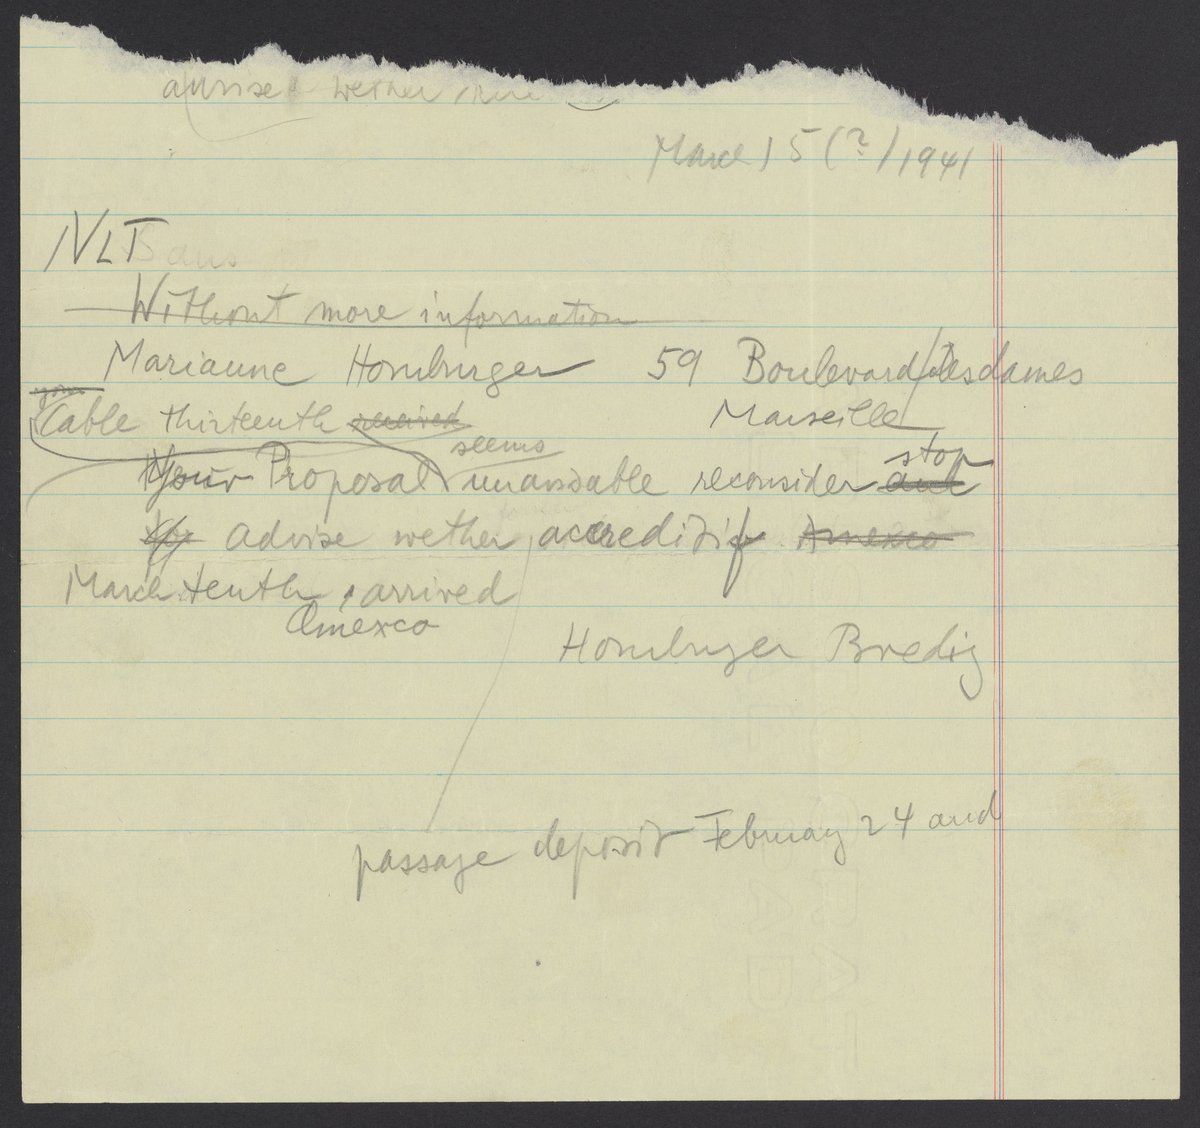 advise wether
March 15 (?) 1941
NLT
Without more information
Marianne Homburger 59 Boulevard des dames
Marseille
your
Cable thirteenth received
seems
stop
Your Proposal unavoidable reconsider and
advise wether accreditif Amexco
March tenth arrived
Amexco
Homburger Bredig
passage deposit February 24 and